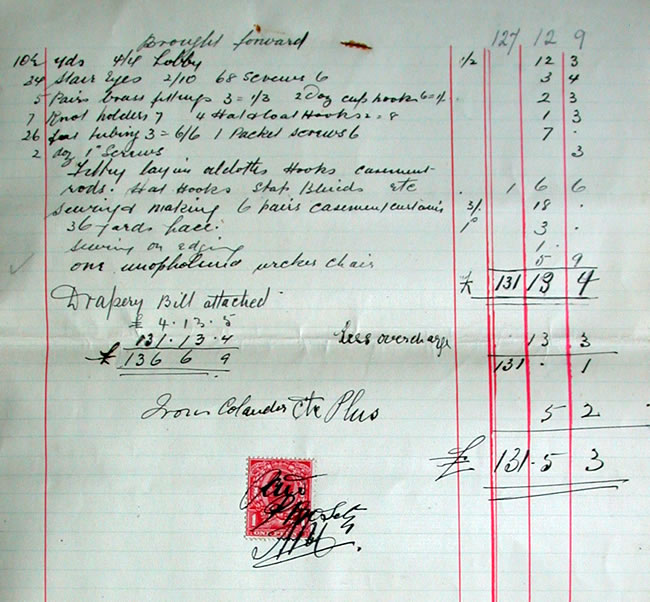 Brought forward 127 12 9
10½ yds 4/4 Lobby 1/2 12 3
34 Stair Eyes 2/10 68 Screws 6 3 4
5 Pairs brass fittings 3 = 1/3 2 Doz cup hooks 6 = 1/. 2 3
7 Knot holders 7 4 Hat & Coat Hooks 2 = 8 1 3
26 feet tubing 3 = 6/6 1 Packet screws 6 7 .
2 doz 1" Screws 3
Fitting laying Hooks casement
rods. Hat Hooks Stair Blinds etc 1 6 6
Sewing & making 6 pairs casement curtains 3/. 18 .
36 yards lace. 1ᴰ 3 .
Sewing on edging 1 .
one wicker chair 5 9
£ 131 13 4
Drapery Bill attached
£ 4 . 13 . 5
131 . 13 . 4
£ 136 6 9
Less overcharge 13 3
131 . 1
Colander Etc Plus 5 2
£ 131 . 5 3
ONE PENNY